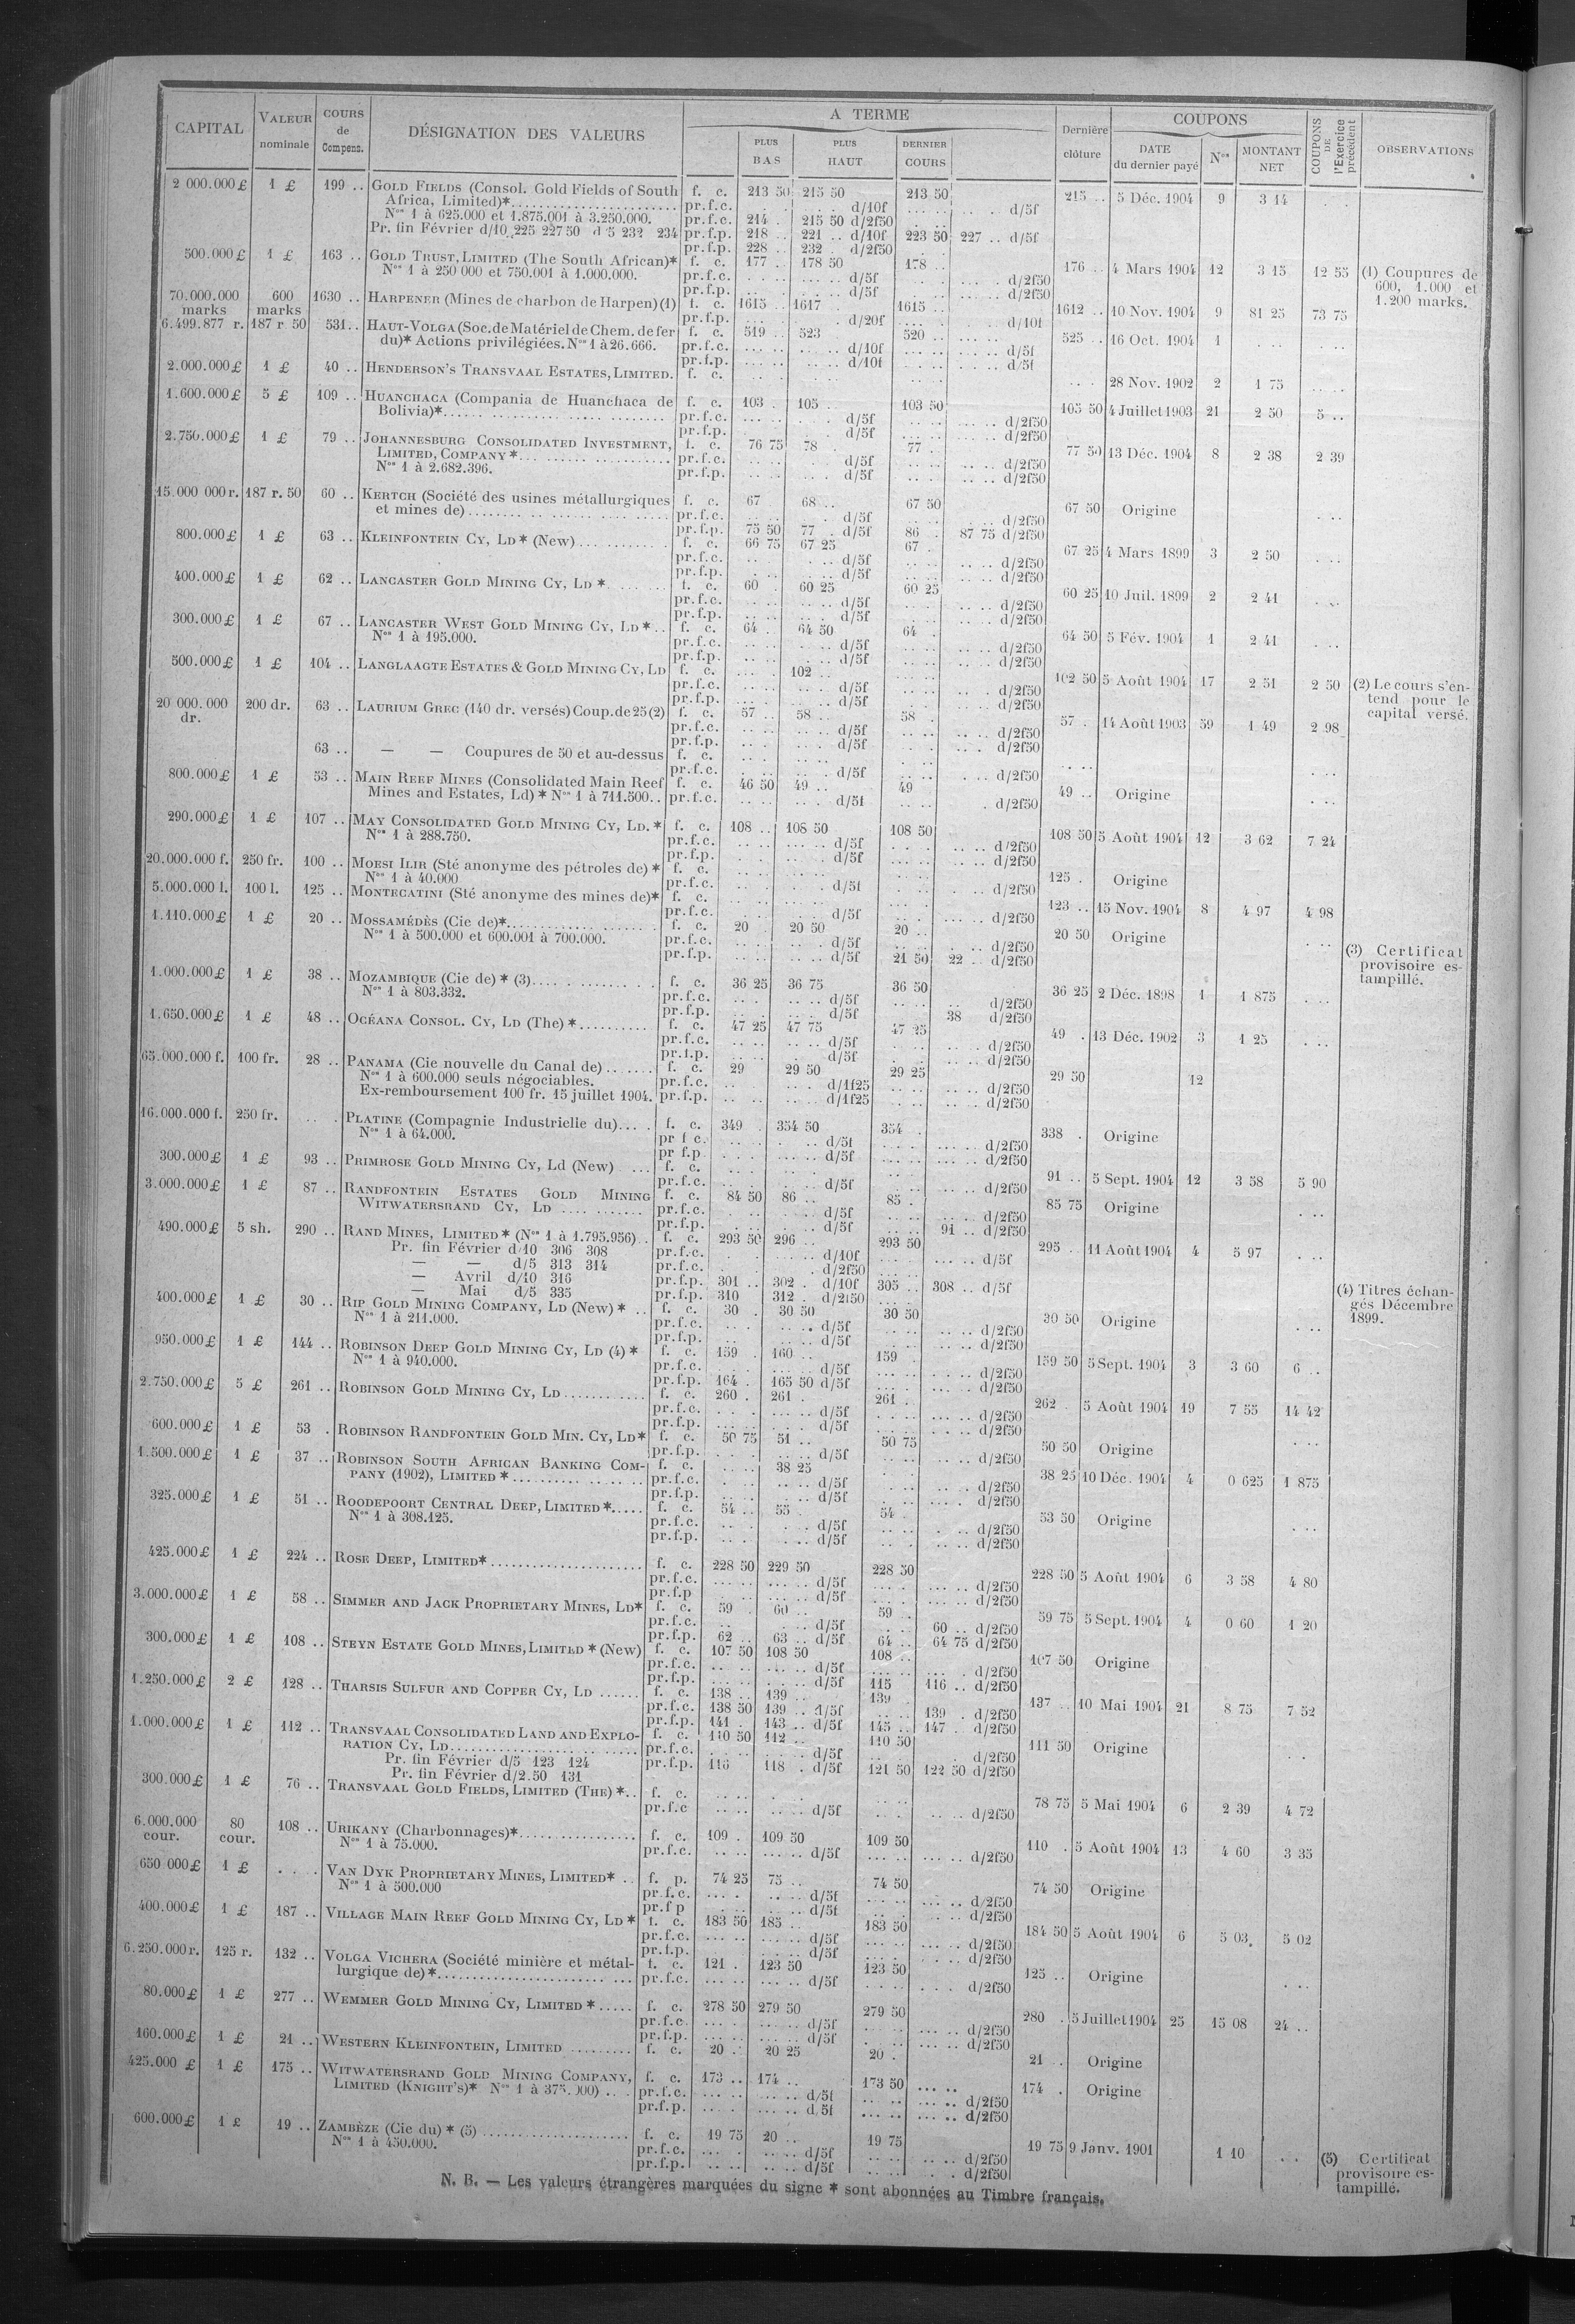 CAPITAL
VALEUR nominale
COURS de Compens.
DÉSIGNATION DES VALEURS
A TERME
PLUS BAS
PLUS HAUT
DERNIER COURS
Dernière clôture
COUPONS
DATE du dernier payé
Nos
MONTANT NET
COUPONS DE l'Exercice précédent
OBSERVATIONS
2 000.000 £ 1 £ 199 .. GOLD FIELDS (Consol. Gold Fields of South f. c. 213 50 215 50 213 50 215 .. 5 Déc. 1904 9 3 14
Africa, Limited)* pr.f.c. d/10f d/5f
Nos 1 à 625.000 et 1.875.001 à 3.250.000. pr.f.c. 214 215 50 d/2f50
Pr. fin Février d/10 225 227 50 d/5 232 234 pr.f.p. 218 221 d/10f 223 50 227 .. d/5f
pr.f.p. 228 .. 232 d/2f50
500.000 £ 1 £ 163 .. GOLD TRUST, LIMITED (The South African)* f. c. 177 178 50 178 .. 176 .. 4 Mars 1904 12 3 15 12 55 (1) Coupures de
Nos 1 à 250 000 et 750.001 à 1.000.000. pr.f.c. d/5f d/2f50 600, 1.000 et
pr.f.p. d/5f d/2f50 1.200 marks.
70.000.000 marks 600 marks 1630 .. HARPENER (Mines de charbon de Harpen) (1) f. c. 1615 1617 1615 .. 1612 .. 10 Nov. 1904 9 81 25 73 75
pr.f.p. d/20f d/10f
6.499.877 r. 187 r 50 531 .. HAUT-VOLGA (Soc. de Matériel de Chem. de fer f. c. 519 523 520 .. 525 .. 16 Oct. 1904 1
du)* Actions privilégiées. Nos 1 à 26.666. pr.f.c. d/10f d/5f
pr.f.p. d/10f d/5f
2.000.000 £ 1 £ 40 .. HENDERSON'S TRANSVAAL ESTATES, LIMITED. f. c. 28 Nov. 1902 2 1 75
1.600.000 £ 5 £ 109 .. HUANCHACA (Compania de Huanchaca de f. c. 103 105 103 50 105 50 4 Juillet 1903 21 2 50 5 ..
Bolivia)* pr.f.c. d/5f d/2f50
pr.f.p. d/5f d/2f50
2.750.000 £ 1 £ 79 .. JOHANNESBURG CONSOLIDATED INVESTMENT, f. c. 76 75 78 77 77 50 13 Déc. 1904 8 2 38 2 39
LIMITED, COMPANY * pr.f.c. d/5f d/2f50
Nos 1 à 2.682.396. pr.f.p. d/5f d/2f50
15.000 000 r. 187 r. 50 60 .. KERTCH (Société des usines métallurgiques f. c. 67 68 .. 67 50 67 50 Origine
et mines de) pr.f.c. d/5f d/2f50
pr.f.p. 75 50 77 d/5f 86 87 75 d/2f50
800.000 £ 1 £ 63 .. KLEINFONTEIN CY, LD * (New) f. c. 66 75 67 25 67 67 25 4 Mars 1899 3 2 50
pr.f.c. d/5f d/2f50
pr.f.p. d/5f d/2f50
400.000 £ 1 £ 62 .. LANCASTER GOLD MINING CY, LD * f. c. 60 60 25 60 25 60 25 10 Juil. 1899 2 2 41
pr.f.c. d/5f d/2f50
pr.f.p. d/5f d/2f50
300.000 £ 1 £ 67 .. LANCASTER WEST GOLD MINING CY, LD * f. c. 64 .. 64 50 64 64 50 5 Fév. 1904 1 2 41
Nos 1 à 195.000. pr.f.c. d/5f d/2f50
pr.f.p. d/5f d/2f50
500.000 £ 1 £ 104 .. LANGLAAGTE ESTATES & GOLD MINING CY, LD f. c. 102 .. 102 50 5 Août 1904 17 2 51 2 50 (2) Le cours s'en-
pr.f.c. d/5f d/2f50 tend pour le
pr.f.p. d/5f d/2f50 capital versé.
20 000.000 dr. 200 dr. 63 .. LAURIUM GREC (140 dr. versés) Coup. de 25 (2) f. c. 57 58 .. 58 57 14 Août 1903 59 1 49 2 98
pr.f.c. d/5f d/2f50
pr.f.p. d/5f d/2f50
63 .. — — Coupures de 50 et au-dessus f. c.
pr.f.c. d/5f d/2f50
800.000 £ 1 £ 53 .. MAIN REEF MINES (Consolidated Main Reef f. c. 46 50 49 .. 49 49 .. Origine
Mines and Estates, Ld) * Nos 1 à 711.500 pr.f.c. d/5f d/2f50
290.000 £ 1 £ 107 .. MAY CONSOLIDATED GOLD MINING CY, LD. * f. c. 108 .. 108 50 108 50 108 50 5 Août 1904 12 3 62 7 24
Nos 1 à 288.750. pr.f.c. d/5f d/2f50
pr.f.p. d/5f d/2f50
20.000.000 f. 250 fr. 100 .. MORSI ILIR (Sté anonyme des pétroles de) * f. c. 125 Origine
Nos 1 à 40.000 pr.f.c. d/5f d/2f50
5.000.000 l. 100 l. 125 .. MONTECATINI (Sté anonyme des mines de)* f. c. 123 .. 15 Nov. 1904 8 4 97 4 98
pr.f.c. d/5f d/2f50
1.110.000 £ 1 £ 20 .. MOSSAMÉDÈS (Cie de)* f. c. 20 20 50 20 .. 20 50 Origine
Nos 1 à 500.000 et 600.001 à 700.000. pr.f.c. d/5f d/2f50 (3) Certificat
pr.f.p. d/5f 21 50 22 .. d/2f50 provisoire es-
tampillé.
1.000.000 £ 1 £ 38 .. MOZAMBIQUE (Cie de) * (3) f. c. 36 25 36 75 36 50 36 25 2 Déc. 1898 1 1 875
Nos 1 à 803.332. pr.f.c. d/5f d/2f50
pr.f.p. d/5f 38 d/2f50
1.650.000 £ 1 £ 48 .. OCÉANA CONSOL. CY, LD (The) * f. c. 47 25 47 75 47 25 49 13 Déc. 1902 3 1 25
pr.f.c. d/5f d/2f50
pr.f.p. d/5f d/2f50
65.000.000 f. 100 fr. 28 .. PANAMA (Cie nouvelle du Canal de) f. c. 29 29 50 29 25 29 50 12
Nos 1 à 600.000 seuls négociables. pr.f.c. d/1f25 d/2f50
Ex-remboursement 100 fr. 15 juillet 1904. pr.f.p. d/1f25 d/2f50
16.000.000 f. 250 fr. PLATINE (Compagnie Industrielle du) f. c. 349 354 50 354 338 Origine
Nos 1 à 64.000. pr f c. d/5f d/2f50
pr f.p d/5f d/2f50
300.000 £ 1 £ 93 .. PRIMROSE GOLD MINING CY, Ld (New) f. c. 91 .. 5 Sept. 1904 12 3 58 5 90
pr.f.c. d/5f d/2f50
3.000.000 £ 1 £ 87 .. RANDFONTEIN ESTATES GOLD MINING f. c. 84 50 86 .. 85 85 75 Origine
WITWATERSRAND CY, LD pr.f.c. d/5f d/2f50
pr.f.p. d/5f 91 .. d/2f50
490.000 £ 5 sh. 290 .. RAND MINES, LIMITED * (Nos 1 à 1.795.956) f. c. 293 50 296 .. 293 50 295 .. 11 Août 1904 4 5 97
Pr. fin Février d/10 306 308 pr.f.c. d/10f d/5f
— — d/5 313 314 pr.f.c. d/2f50
— Avril d/10 316 pr.f.p. 301 .. 302 d/10f 305 .. 308 .. d/5f
— Mai d/5 335 pr.f.p. 310 312 d/2f50 (4) Titres échan-
400.000 £ 1 £ 30 .. RIP GOLD MINING COMPANY, LD (New) * f. c. 30 30 50 30 50 30 50 Origine gés Décembre
Nos 1 à 211.000. pr.f.c. d/5f d/2f50 1899.
pr.f.p. d/5f d/2f50
950.000 £ 1 £ 144 .. ROBINSON DEEP GOLD MINING CY, LD (4) * f. c. 159 160 .. 159 159 50 5 Sept. 1904 3 3 60 6 ..
Nos 1 à 940.000. pr.f.c. d/5f d/2f50
pr.f.p. 164 165 50 d/5f d/2f50
2.750.000 £ 5 £ 261 .. ROBINSON GOLD MINING CY, LD f. c. 260 261 261 262 5 Août 1904 19 7 55 14 42
pr.f.c. d/5f d/2f50
pr.f.p. d/5f d/2f50
600.000 £ 1 £ 53 ROBINSON RANDFONTEIN GOLD MIN. CY, LD* f. c. 50 75 51 .. 50 75 50 50 Origine
pr.f.p. d/5f d/2f50
1.500.000 £ 1 £ 37 .. ROBINSON SOUTH AFRICAN BANKING COM- f. c. 38 25 38 25 10 Déc. 1904 4 0 625 1 875
PANY (1902), LIMITED * pr.f.c. d/5f d/2f50
pr.f.p. d/5f d/2f50
325.000 £ 1 £ 51 .. ROODEPOORT CENTRAL DEEP, LIMITED * f. c. 54 .. 55 54 53 50 Origine
Nos 1 à 308.125. pr.f.c. d/5f d/2f50
pr.f.p. d/5f d/2f50
425.000 £ 1 £ 224 .. ROSE DEEP, LIMITED* f. c. 228 50 229 50 228 50 228 50 5 Août 1904 6 3 58 4 80
pr.f.c. d/5f d/2f50
pr.f.p d/5f d/2f50
3.000.000 £ 1 £ 58 .. SIMMER AND JACK PROPRIETARY MINES, LD* f. c. 59 60 .. 59 59 75 5 Sept. 1904 4 0 60 1 20
pr.f.c. d/5f 60 .. d/2f50
pr.f.p. 62 .. 63 .. d/5f 64 64 75 d/2f50
300.000 £ 1 £ 108 .. STEYN ESTATE GOLD MINES, LIMITED * (New) f. c. 107 50 108 50 108 .. 107 50 Origine
pr.f.c. d/5f d/2f50
pr.f.p. d/5f 115 116 .. d/2f50
1.250.000 £ 2 £ 128 .. THARSIS SULFUR AND COPPER CY, LD f. c. 138 .. 139 .. 139 137 .. 10 Mai 1904 21 8 75 7 52
pr.f.c. 138 50 139 .. d/5f 139 d/2f50
pr.f.p. 141 143 .. d/5f 145 .. 147 d/2f50
1.000.000 £ 1 £ 112 .. TRANSVAAL CONSOLIDATED LAND AND EXPLO- f. c. 110 50 112 .. 110 50 111 50 Origine
RATION CY, LD pr.f.c. d/5f d/2f50
Pr. fin Février d/5 123 124 pr.f.p. 116 118 d/5f 121 50 122 50 d/2f50
Pr. fin Février d/2.50 131
300.000 £ 1 £ 76 .. TRANSVAAL GOLD FIELDS, LIMITED (THE) * f. c. 78 75 5 Mai 1904 6 2 39 4 72
pr.f.c d/5f d/2f50
6.000.000 cour. 80 cour. 108 .. URIKANY (Charbonnages)* f. c. 109 109 50 109 50 110 5 Août 1904 13 4 60 3 35
Nos 1 à 75.000. pr.f.c. d/5f d/2f50
650 000 £ 1 £ VAN DYK PROPRIETARY MINES, LIMITED* f. p. 74 25 75 .. 74 50 74 50 Origine
Nos 1 à 500.000 pr.f.c. d/5f d/2f50
pr.f p d/5f d/2f50
400.000 £ 1 £ 187 .. VILLAGE MAIN REEF GOLD MINING CY, LD * f. c. 183 50 185 .. 183 50 184 50 5 Août 1904 6 5 03 5 02
pr.f.c. d/5f d/2f50
pr.f.p. d/5f d/2f50
6.250.000 r. 125 r. 132 .. VOLGA VICHERA (Société minière et métal- f. c. 121 123 50 123 50 125 .. Origine
lurgique de) * pr.f.c. d/5f d/2f50
80.000 £ 1 £ 277 .. WEMMER GOLD MINING CY, LIMITED * f. c. 278 50 279 50 279 50 280 5 Juillet 1904 25 15 08 24 ..
pr.f.c d/5f d/2f50
pr.f.p. d/5f d/2f50
160.000 £ 1 £ 21 .. WESTERN KLEINFONTEIN, LIMITED f. c. 20 20 25 20 21 Origine
425.000 £ 1 £ 175 .. WITWATERSRAND GOLD MINING COMPANY, f. c. 173 .. 174 .. 173 50 174 Origine
LIMITED (KNIGHT'S)* Nos 1 à pr.f.c. d/5f d/2f50
pr.f.p. d/5f d/2f50
600.000 £ 1 £ 19 .. ZAMBÈZE (Cie du) * (5) f. c. 19 75 20 .. 19 75 19 75 9 Janv. 1901 1 10 (5) Certificat
Nos 1 à 450.000. pr.f.c. d/5f d/2f50 provisoire es-
pr.f.p. d/5f d/2f50 tampillé.
N. B. — Les valeurs étrangères marquées du signe * sont abonnées au Timbre français.